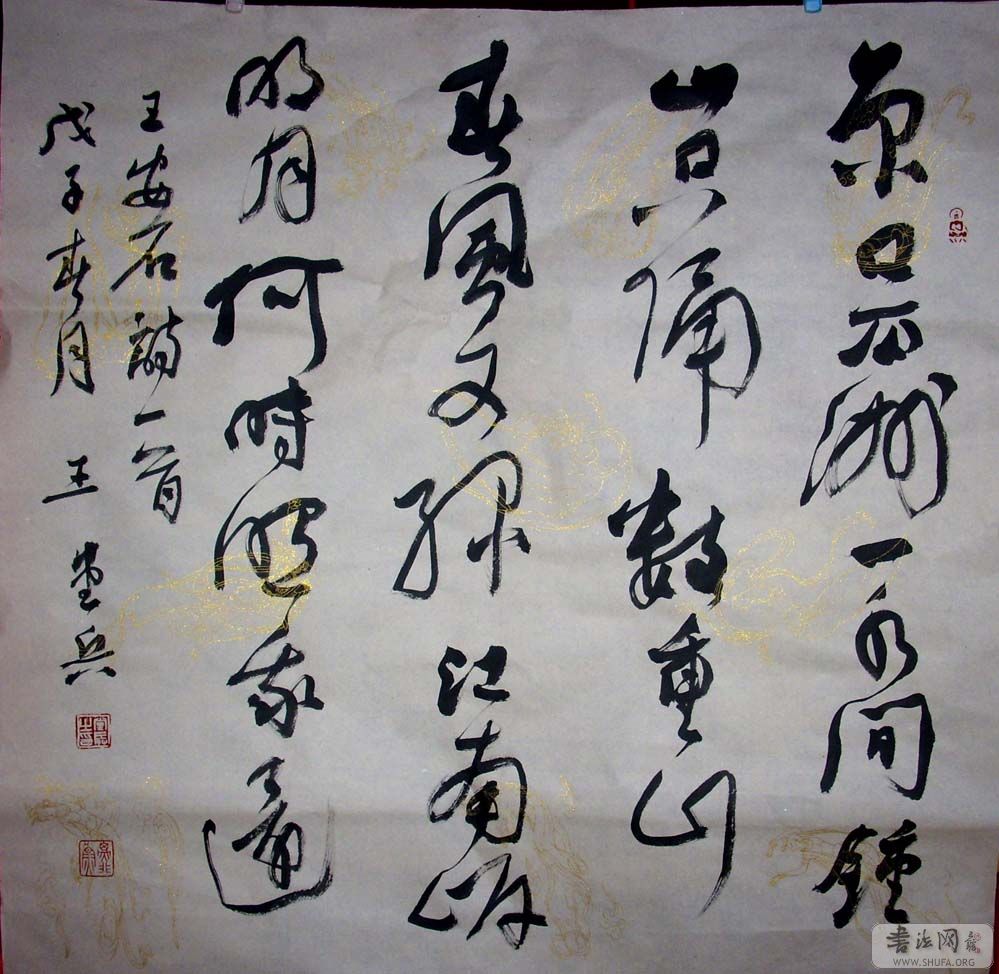 京口瓜洲一水间鍾
山只隔數重山
春風又綠江南岸
明月何時照我還
王安石詩一首
戊子春月 王 兵
书法网
WWW.SHUFA.ORG